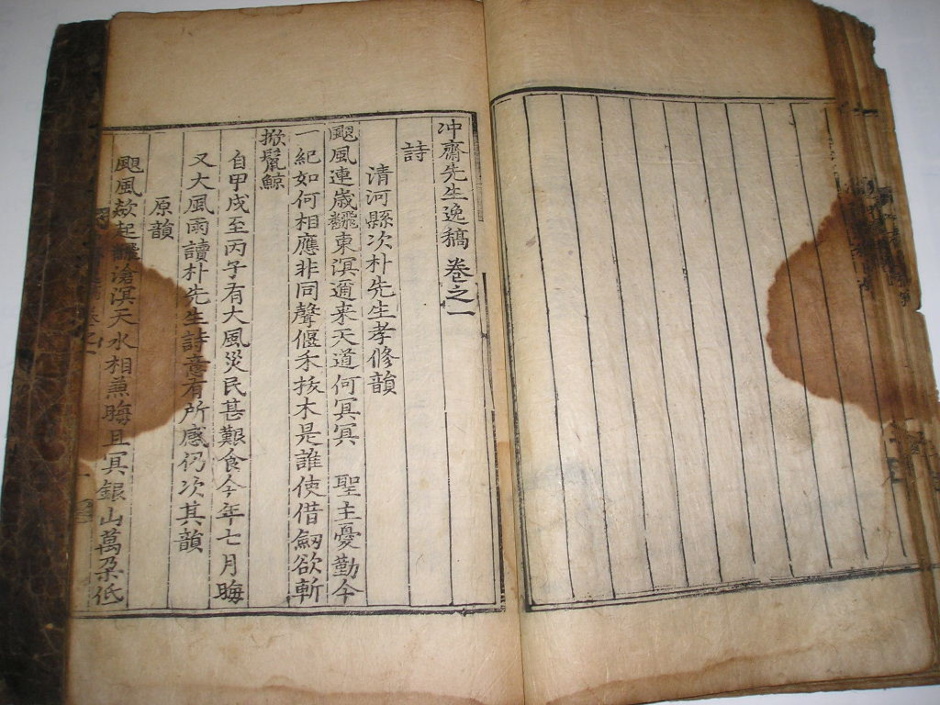 冲齋先生逸稿 卷之一
詩
清河縣次朴先生孝修韻
颶風連歲飜東溟邇来天道何冥冥 聖主憂勤今
一紀如何相應非同聲偃禾拔木是誰使借劒欲斬
掀鬣鯨
自甲戌至丙子有大風災民甚艱食今年七月晦
又大風雨讀朴先生詩意有所感仍次其韻
原韻
颶風欻起飜滄溟天水相蕪晦且冥銀山萬朶低